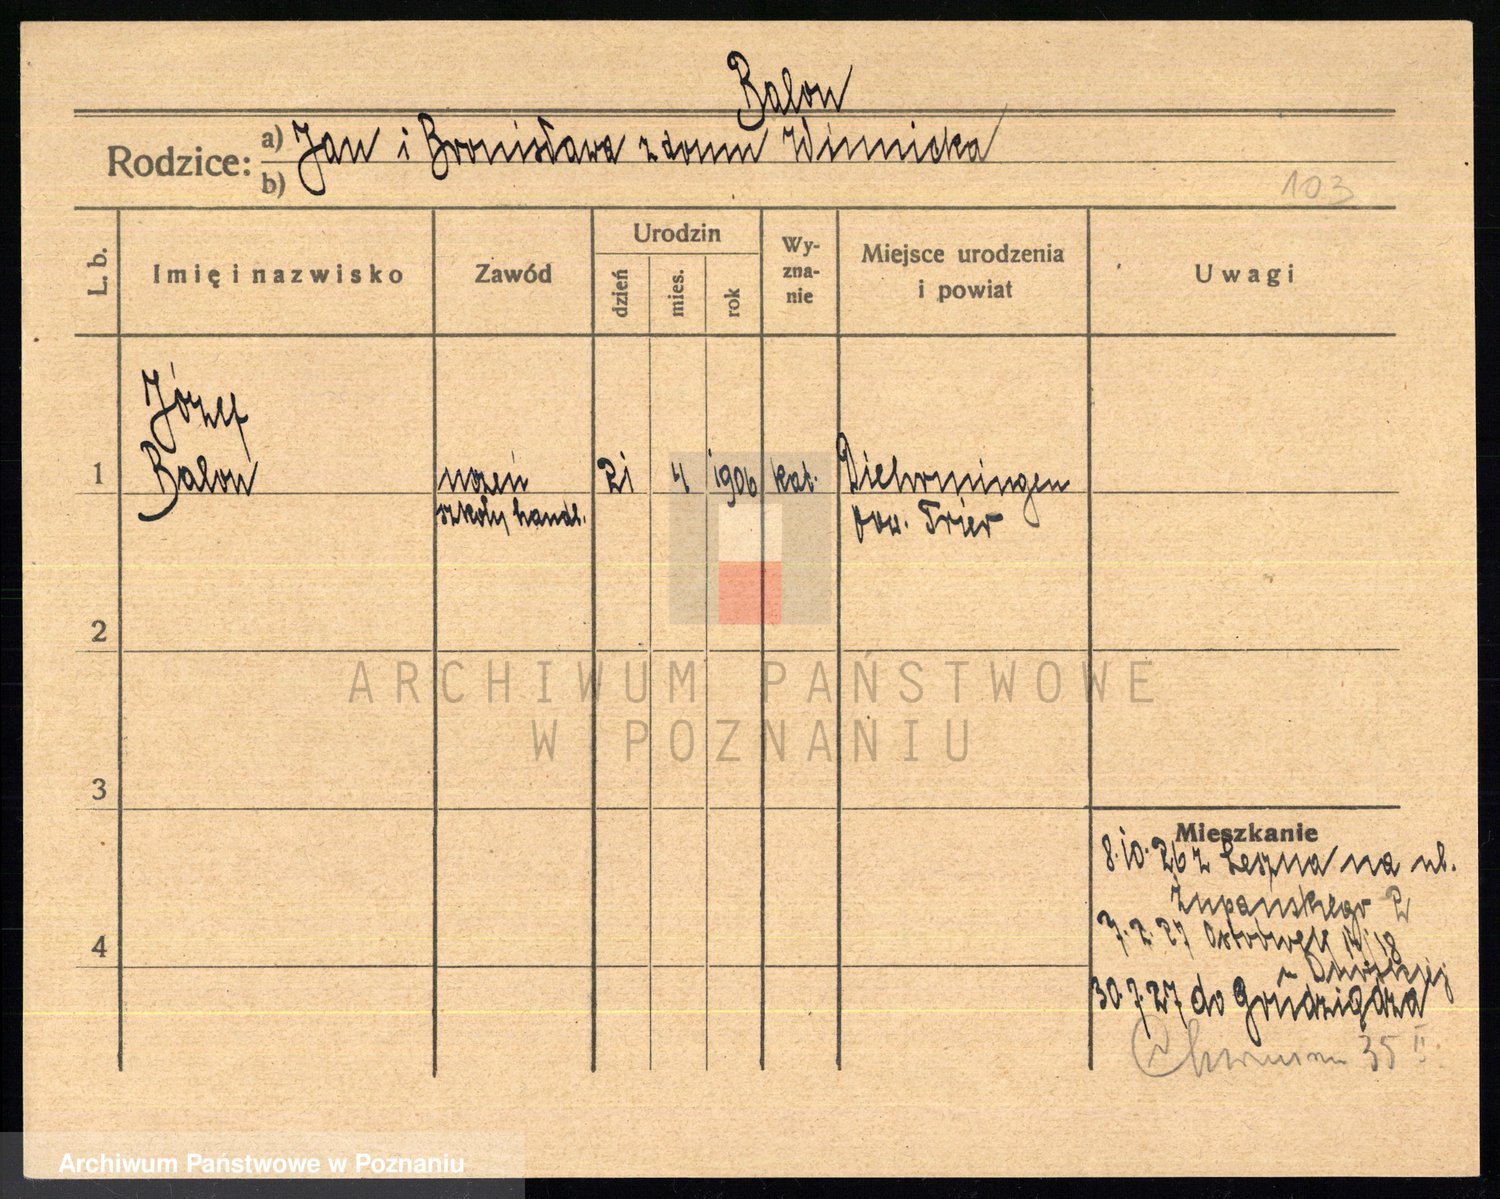 Balon
Rodzice: a) Jan i Bronisława z domu Winnicka
b)
103
L. b.
Imię i nazwisko
Zawód
Urodzin
dzień
mies.
rok
Wy-
zna-
nie
Miejsce urodzenia
i powiat
Uwagi
Józef
1 Balon uczeń 21 4 1906 kat. Diehrmingen
szkoły handl. pow. Trier
2
ARCHIWUM PAŃSTWOWE
W POZNANIU
3
Mieszkanie
8.10.26 z Leszna na ul.
Żupańskiego 2
4
7.2.27
30.7.27 do Grudziądza
35 II
Archiwum Państwowe w Poznaniu